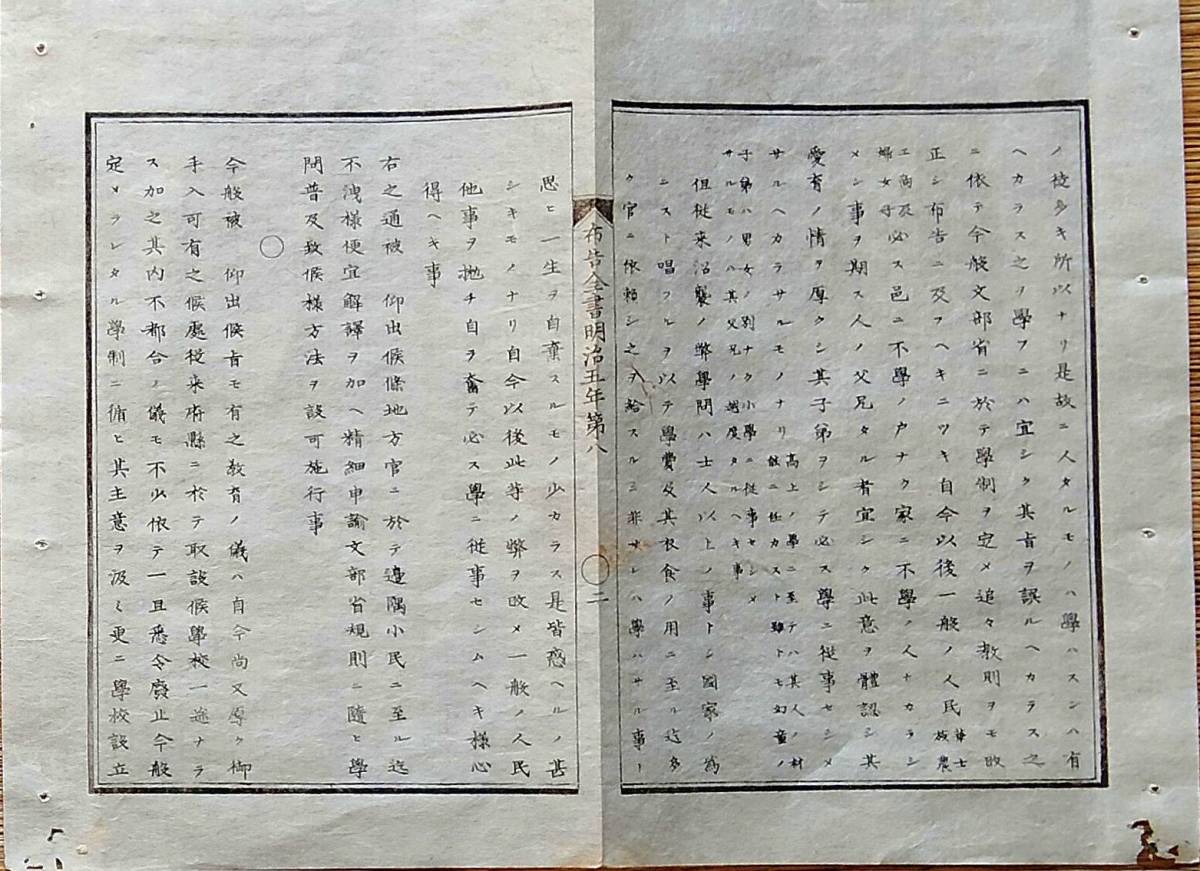 ノ徒多キ所以ナリ是故ニ人タルモノハ學ハスンハ有
ヘカラス之ヲ學フニハ宜シク其旨ヲ誤ルヘカラス之
ニ依テ今般文部省ニ於テ學制ヲ定メ追々教則ヲモ改
正シ布告ニ及フヘキニツキ自今以後一般ノ人民華士族農
工商及婦女子必ス邑ニ不學ノ戸ナク家ニ不學ノ人ナカラシ
メン事ヲ期ス人ノ父兄タル者宜シク此意ヲ體認シ其
愛育ノ情ヲ厚クシ其子弟ヲシテ必ス學ニ從事セシメ
サルヘカラサルモノナリ高上ノ學ニ至テハ其人ノ材能ニ任カスト雖トモ幼童ノ
子弟ハ男女ノ別ナク小學ニ從事セシメサルモノハ其父兄ノ越度タルヘキ事
但從来沿襲ノ弊學問ハ士人以上ノ事トシ國家ノ為
ニスト唱フルヲ以テ學費及其衣食ノ用ニ至ル迄多
ク官ニ依頼シ之ヲ給スルニ非サレハ學ハサル事ト
布告全書明治五年第八 〇 二
思ヒ一生ヲ自棄スルモノ少カラス是皆惑ヘルノ甚
シキモノナリ自今以後此等ノ弊ヲ改メ一般ノ人民
他事ヲ抛チ自ヲ奮テ必ス學ニ從事セシムヘキ様心
得ヘキ事
右之通被 仰出候條地方官ニ於テ邉隅小民ニ至ル迄
不洩様便宜解譯ヲ加ヘ精細申諭文部省規則ニ隨ヒ學
問普及致候様方法ヲ設可施行事
〇
今般被 仰出候旨モ有之教育ノ儀ハ自今尚又厚ク御
手入可有之候處從来府縣ニ於テ取設候學校一途ナラ
ス加之其内不都合ノ儀モ不少依テ一旦悉令廢止今般
定メラレタル學制ニ循ヒ其主意ヲ汲ミ更ニ學校設立